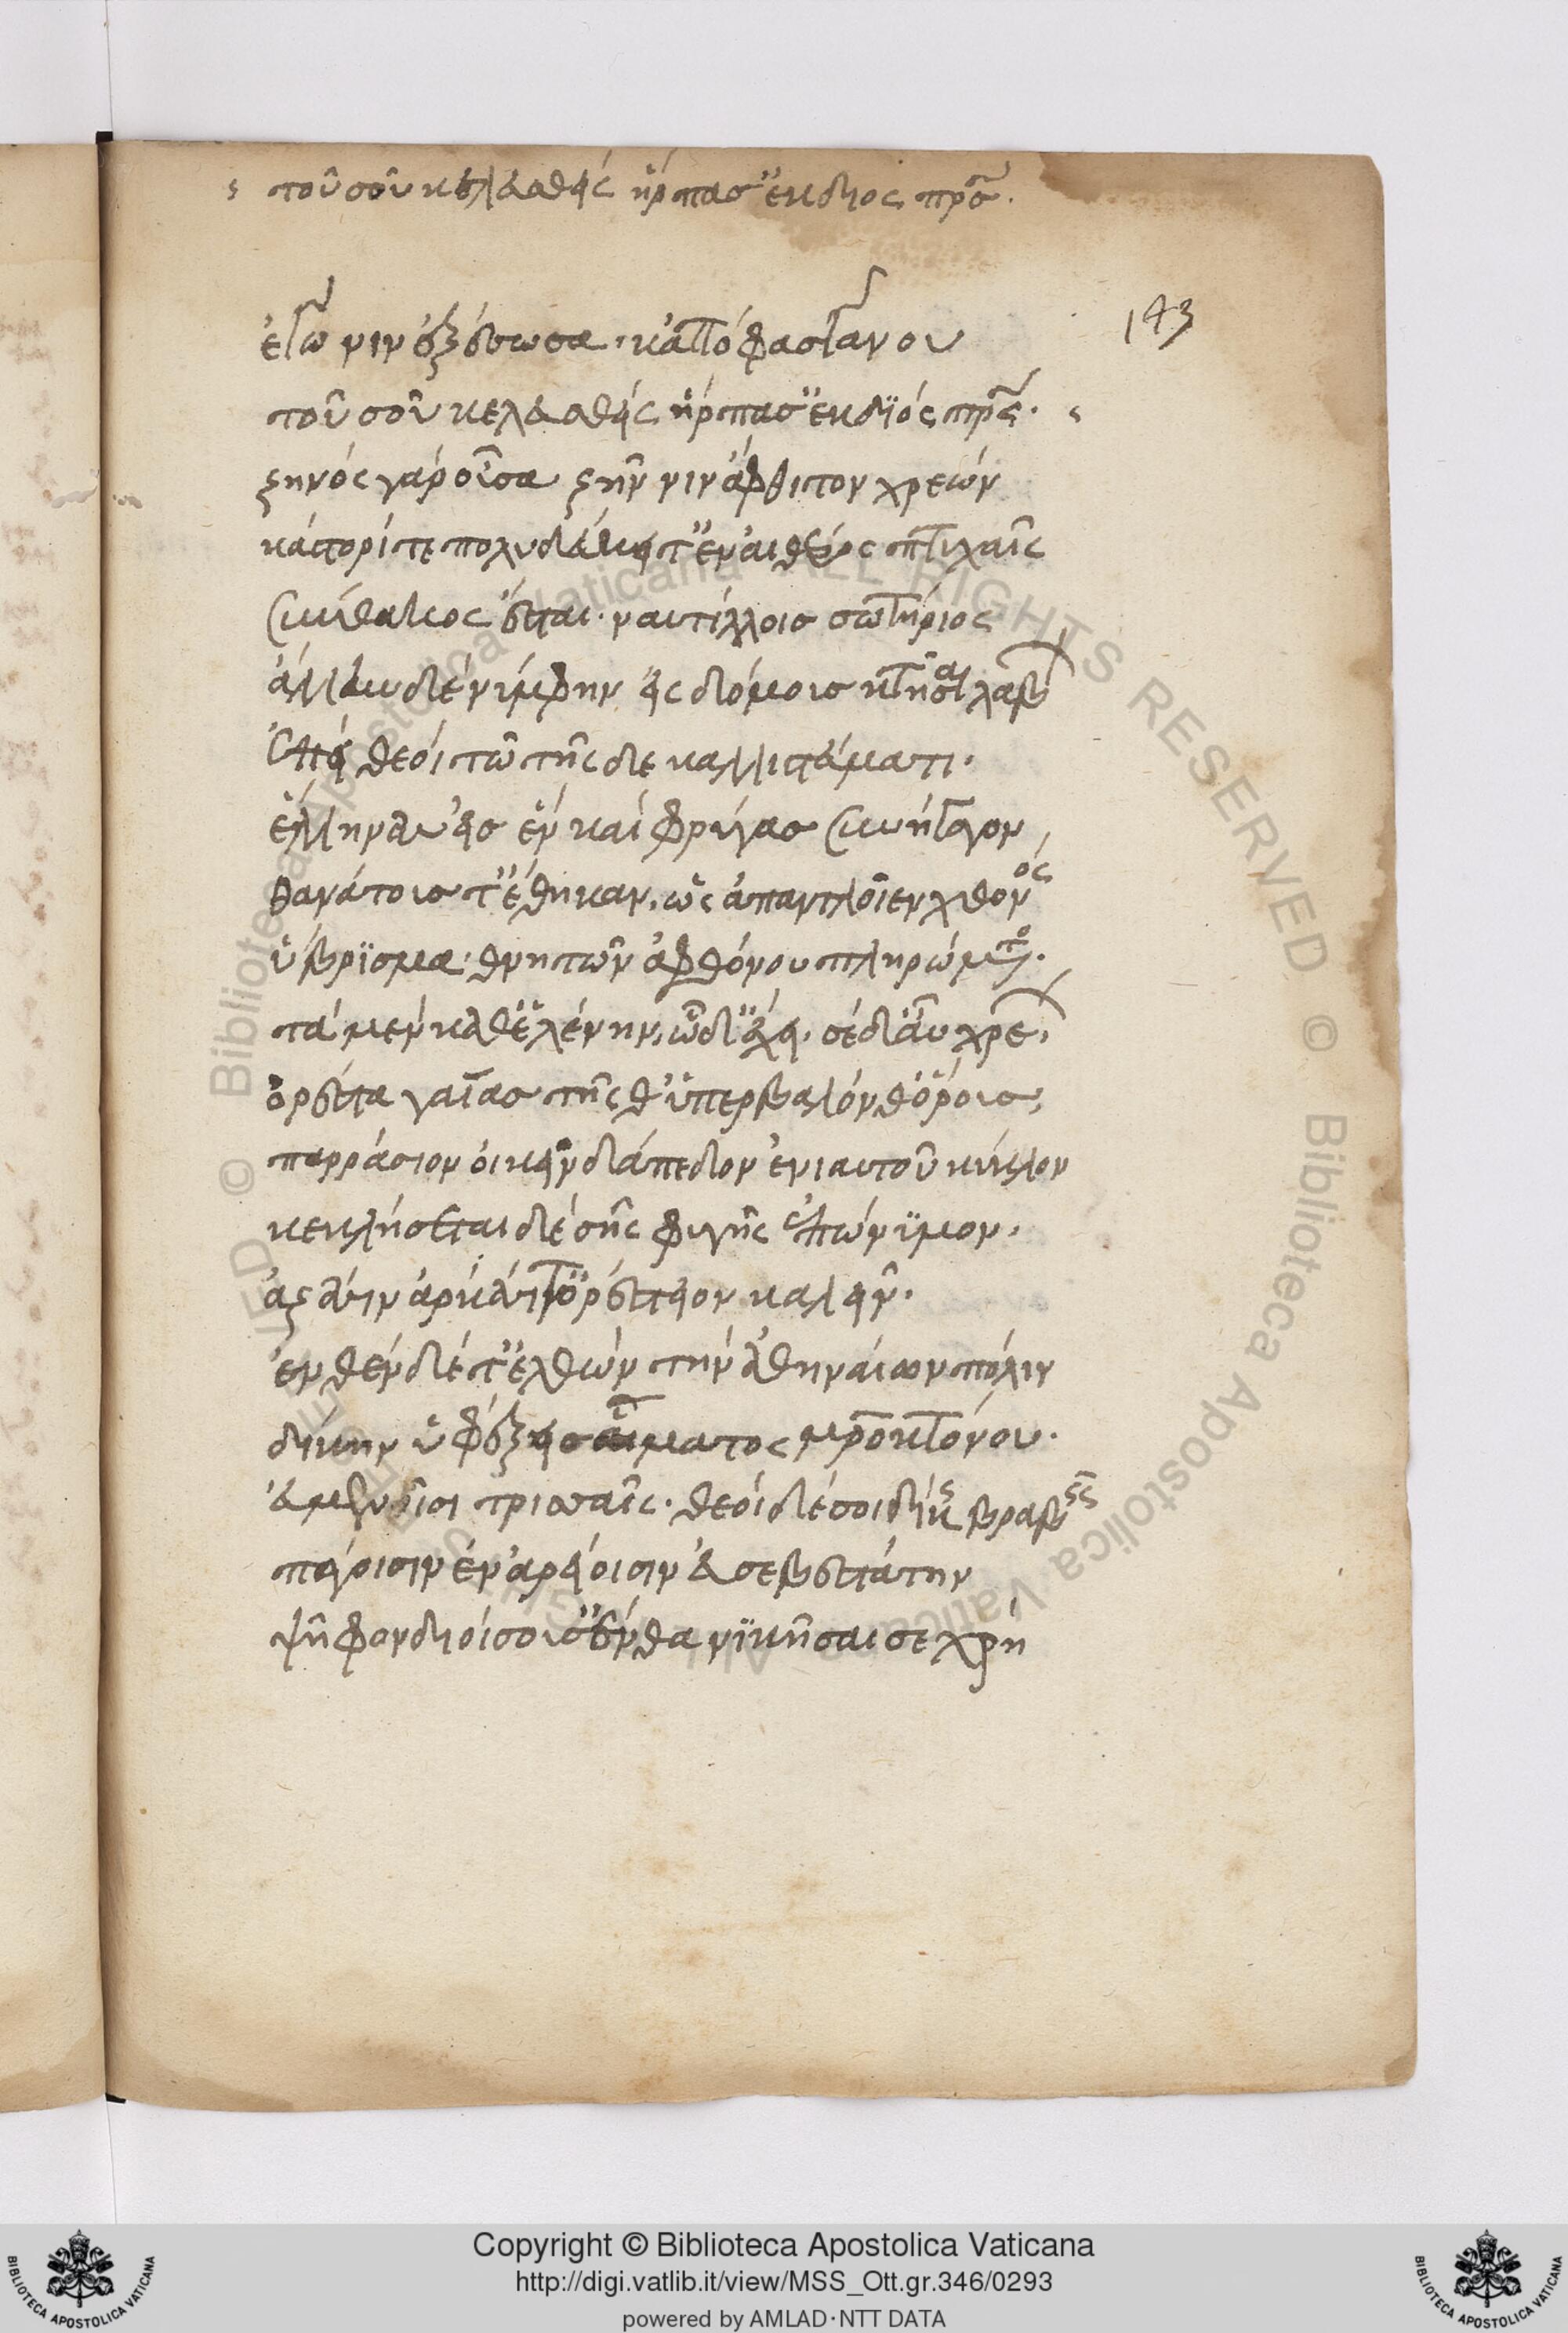 τοῦ σοῦ κελευσθεὶς ἥρπασ' ἐκ διὸς πρσ.
143
ἐγώ νιν ἐξέσωσα. κἀπὸ φασγάνου
τοῦ σοῦ κελευσθεὶς ἥρπασ' ἐκ διὸς πρς.
ζηνὸς γὰρ οὖσα ζῆν νιν ἄφθιτον χρεών
κάστορί τε πολυδεύκει τ' ἐν αἰθέρος πτυχαῖς
σύνθακος ἔσται. ναυτίλοις σωτήριος
ἄλλην δὲ νύμφην εἰς δόμους κτῆσαι λαβ
ἐπεὶ θεοὶ τῶ τῆς δε καλλιστεύματι.
ἕλληνας εἰς ἓν καὶ φρύγας συνήγαγον
θανάτους τ' ἔθηκαν. ὡς ἀπαντλοῖεν χθονός
ὕβρισμα. θνητῶν ἀφθόνου πληρώματος.
τὰ μὲν καθ' ἑλένην, ὧδ' ἔχει. σὲ δ' αὖ χρε,
ὀρέστα γαίας τῆς θ' ὑπερβαλόνθ' ὅρους
παρράσιον οἰκεῖν δάπεδον ἐνιαυτοῦ κύκλον
κεκλήσεται δὲ σῆς φυγῆς ἐπώνυμον.
ἀζᾶσιν ἀρκάσιν τ' ὀρέστειον καλεῖν.
ἐνθένδε τ' ἐλθὼν τὴν ἀθηναίων πόλιν
δίκην ὑφέξεις αἵματος μροκτόνου.
εὐμενίσι τρισσαῖς. θεοὶ δέ σοι δίκς βραβ
πάγοισιν ἐν ἀρείοισιν εὐσεβεστάτην
ψῆφον διοίσουσ' ἔνθα νικῆσαι σε χρή
Copyright © Biblioteca Apostolica Vaticana
http://digi.vatlib.it/view/MSS_Ott.gr.346/0293
powered by AMLAD·NTT DATA